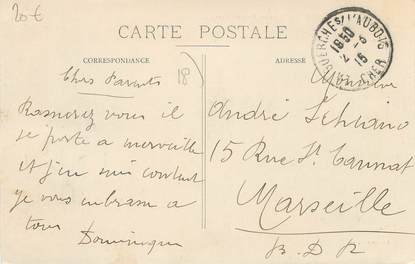 20€
CARTE POSTALE
CORRESPONDANCE
ADRESSE
L'AUBOIS
18 50
2 - 5
15
CHER
18
Chers Parents
Rassurez vous il
se porte a merveille
et j'en suis content
je vous embrasse a
tous
Dominique
Monsieur
André
15 Rue St Cannat
Marseille
B. D. R